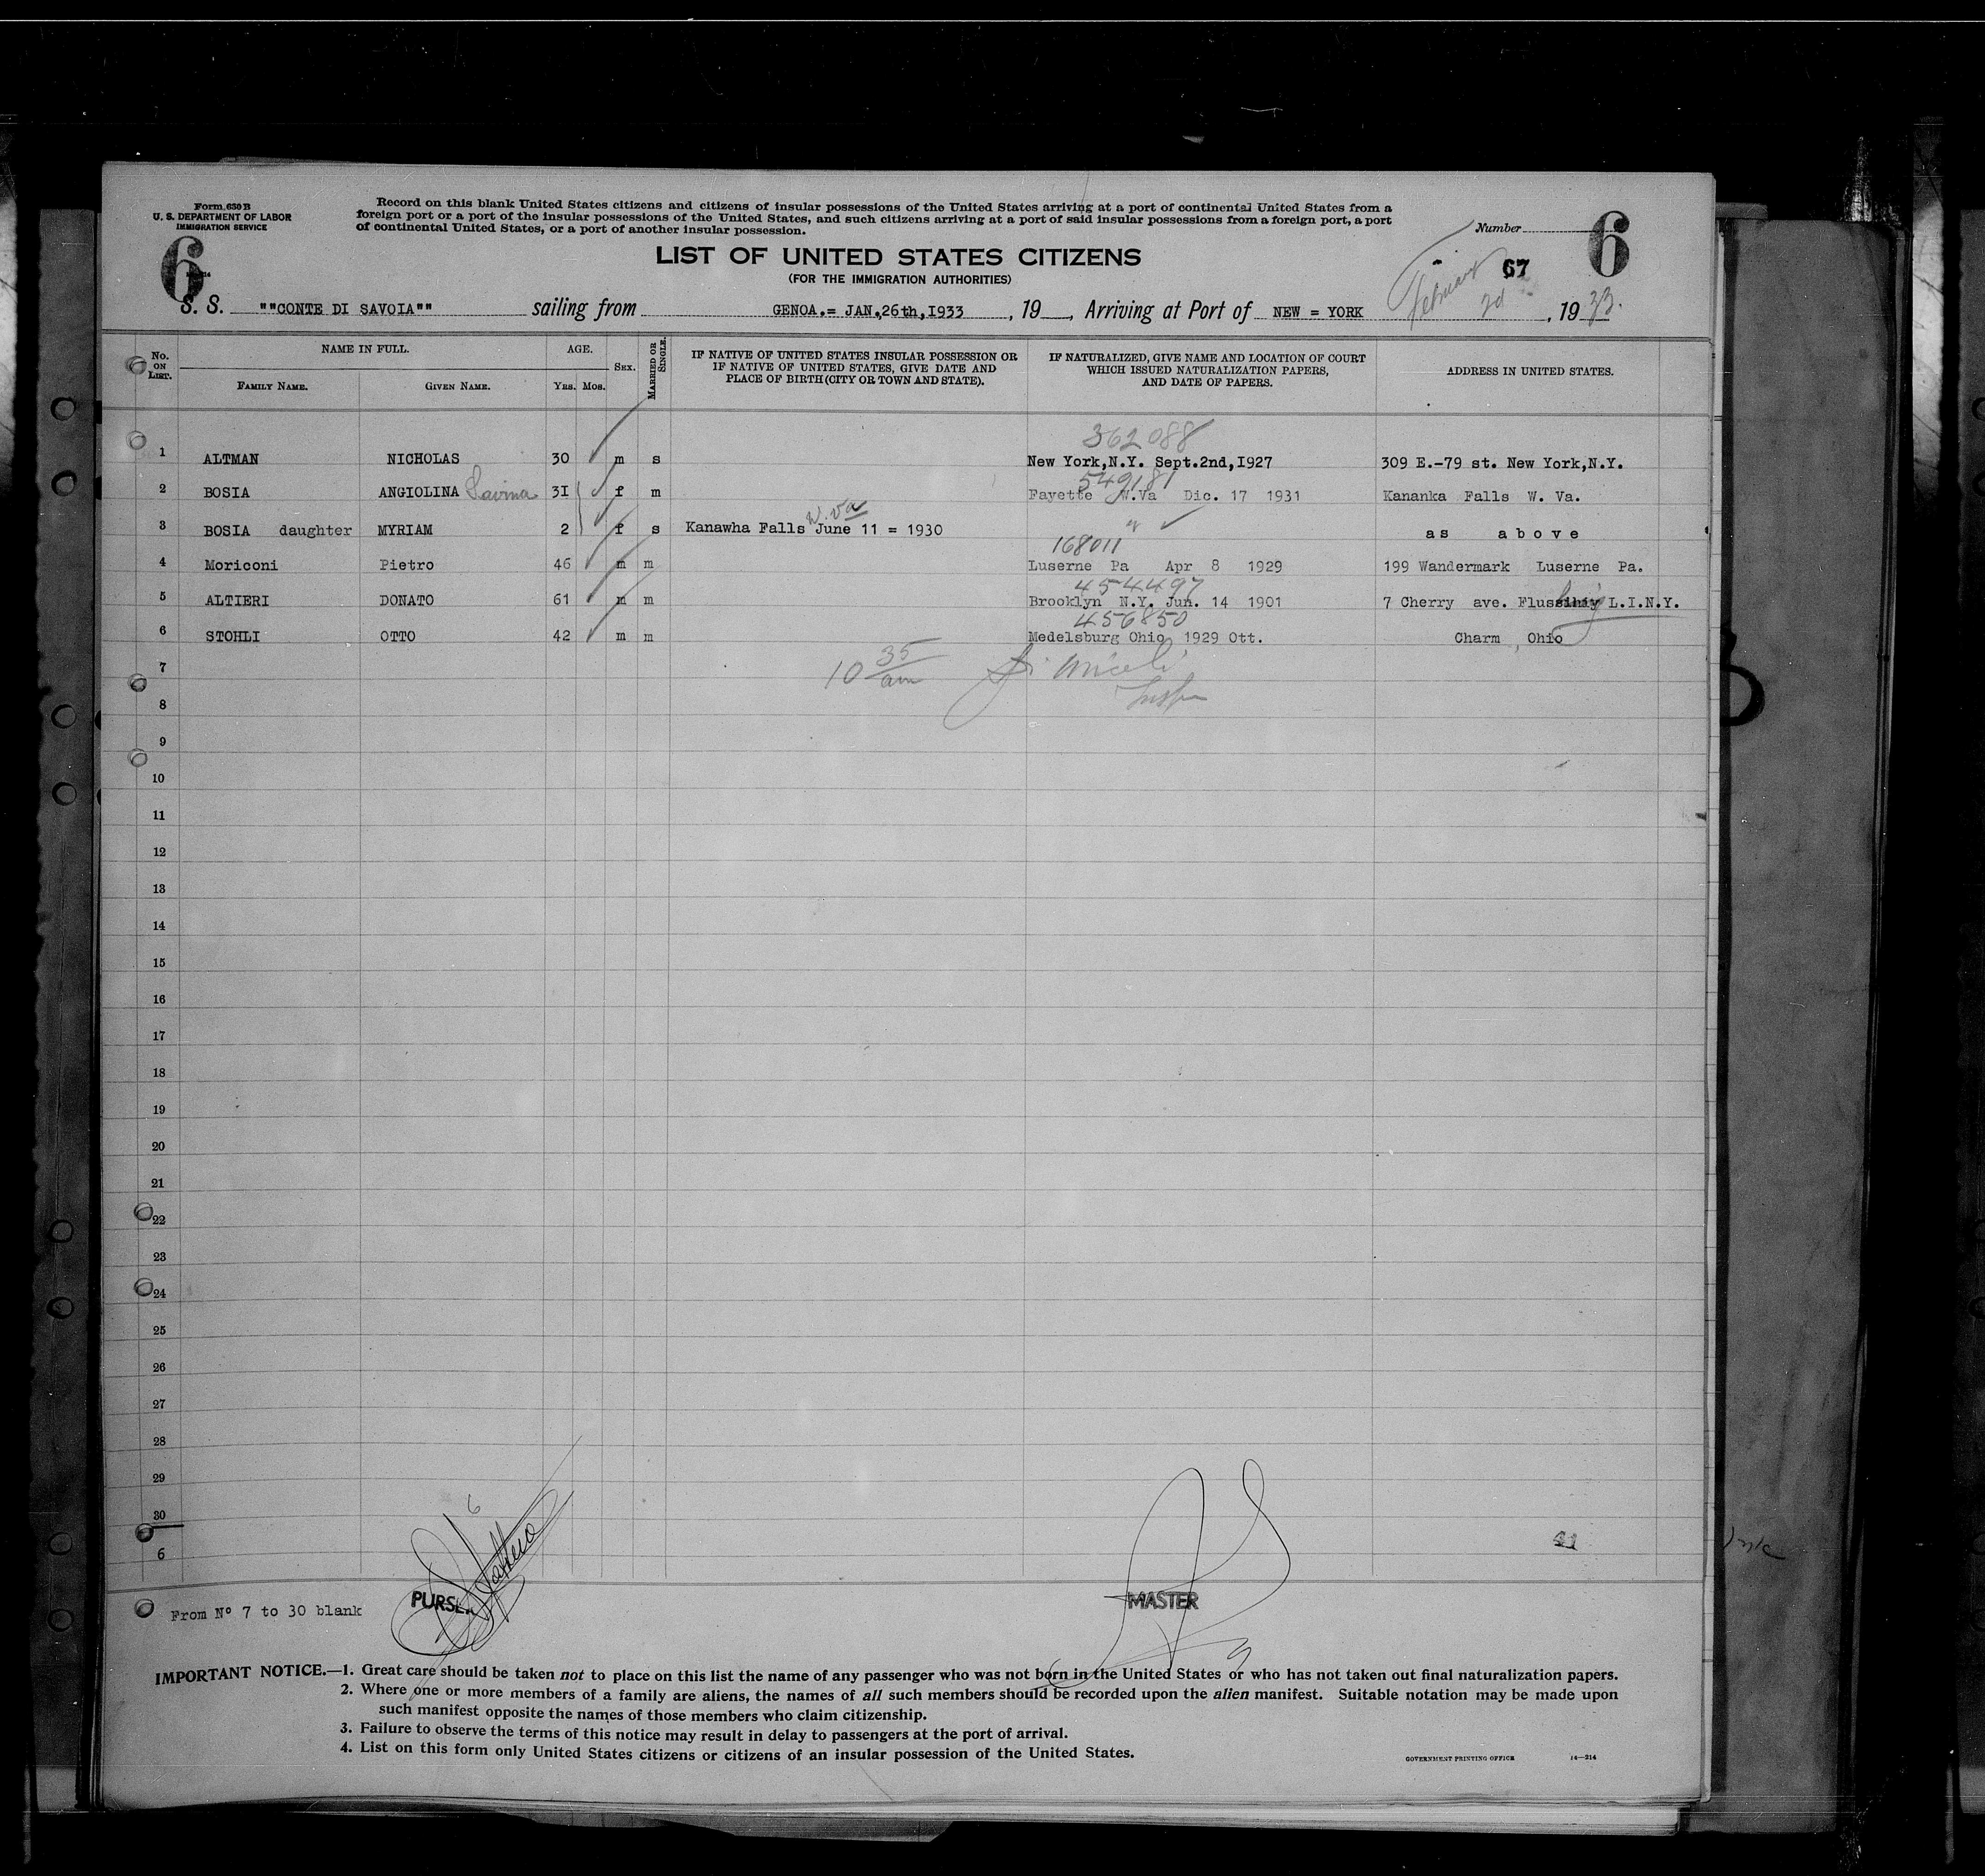 Form 630 B
U. S. DEPARTMENT OF LABOR
IMMIGRATION SERVICE
Record on this blank United States citizens and citizens of insular possessions of the United States arriving at a port of continental United States from a
foreign port or a port of the insular possessions of the United States, and such citizens arriving at a port of said insular possessions from a foreign port, a port
of continental United States, or a port of another insular possession.
Number
6
6
67
LIST OF UNITED STATES CITIZENS
(FOR THE IMMIGRATION AUTHORITIES)
S. S. ""CONTE DI SAVOIA"" sailing from GENOA.= JAN.,26th,I933, 19 , Arriving at Port of NEW = YORK February 2d, 1933.
No. ON LIST.
NAME IN FULL.
FAMILY NAME.
GIVEN NAME.
AGE.
YRS. MOS.
SEX.
MARRIED OR SINGLE.
IF NATIVE OF UNITED STATES INSULAR POSSESSION OR
IF NATIVE OF UNITED STATES, GIVE DATE AND
PLACE OF BIRTH (CITY OR TOWN AND STATE).
IF NATURALIZED, GIVE NAME AND LOCATION OF COURT
WHICH ISSUED NATURALIZATION PAPERS,
AND DATE OF PAPERS.
ADDRESS IN UNITED STATES.
362088
1 ALTMAN NICHOLAS 30 m s New York,N.Y. Sept.2nd,I927 309 E.-79 st. New York,N.Y.
549181
2 BOSIA ANGIOLINA Savina 3I f m Fayette W.Va Dic. 17 1931 Kananka Falls W. Va.
W. Va
3 BOSIA daughter MYRIAM 2 f s Kanawha Falls June 11 = 1930 as above
168011
4 Moriconi Pietro 46 m m Luserne Pa Apr 8 1929 199 Wandermark Luserne Pa.
454497
5 ALTIERI DONATO 61 m m Brooklyn N.Y. Jun. 14 1901 7 Cherry ave. Flussihiy L.I.N.Y.
456850
6 STOHLI OTTO 42 m m Medelsburg Ohio 1929 Ott. Charm , Ohio
7
10 35 am
8
9
10
11
12
13
14
15
16
17
18
19
20
21
22
23
24
25
26
27
28
29
6
30
6
41
PURSER
MASTER
From Nº 7 to 30 blank
IMPORTANT NOTICE.—1. Great care should be taken not to place on this list the name of any passenger who was not born in the United States or who has not taken out final naturalization papers.
2. Where one or more members of a family are aliens, the names of all such members should be recorded upon the alien manifest. Suitable notation may be made upon
such manifest opposite the names of those members who claim citizenship.
3. Failure to observe the terms of this notice may result in delay to passengers at the port of arrival.
4. List on this form only United States citizens or citizens of an insular possession of the United States.
GOVERNMENT PRINTING OFFICE
14—214